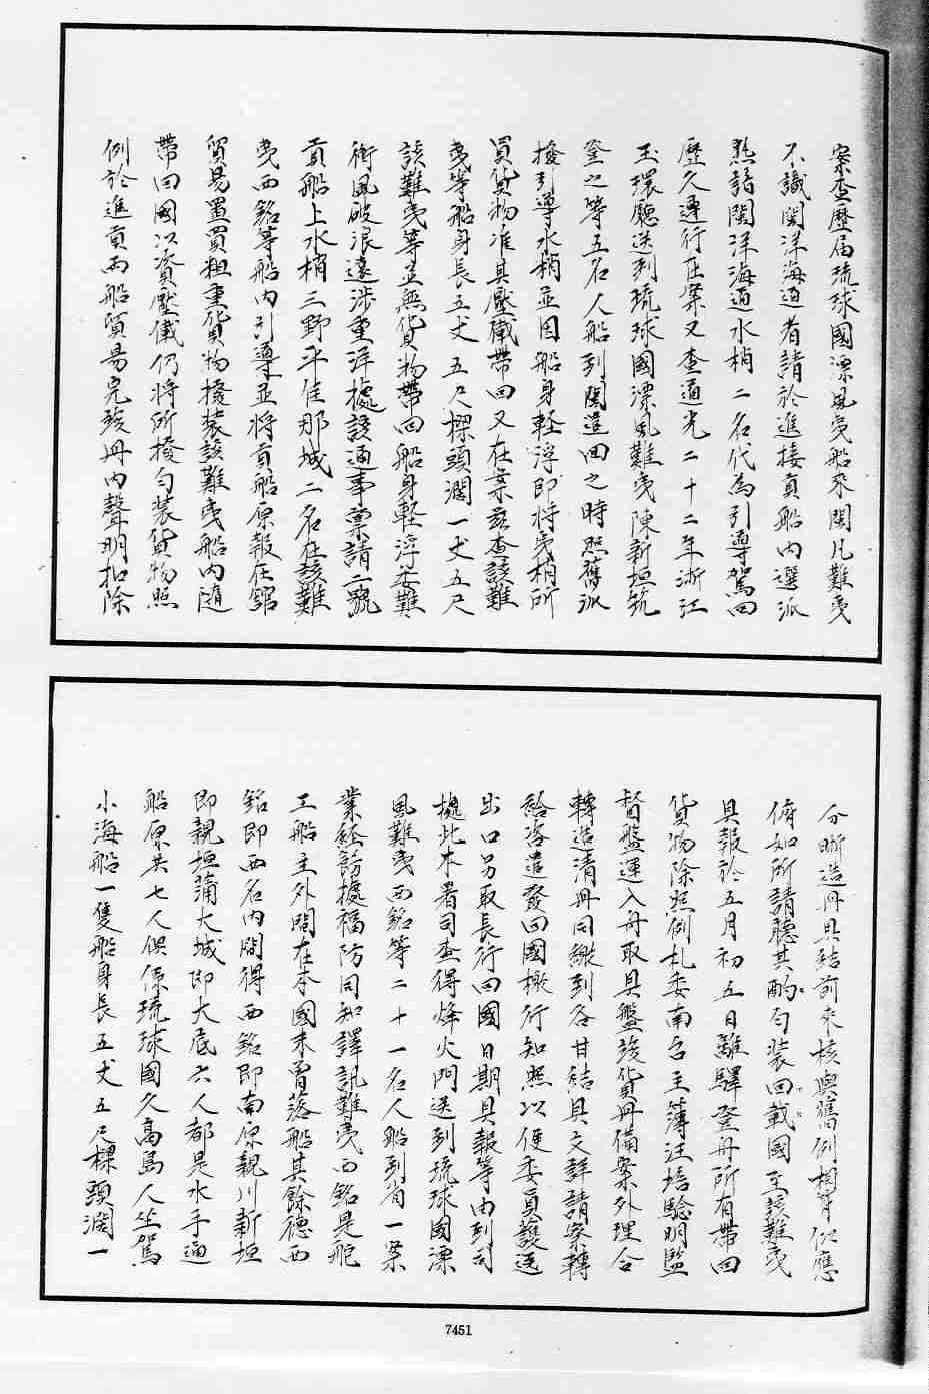 案查歷屆琉球國漂風曳船來閩凡難曳
不識閩洋海道者請於進接貢船內選派
熟諳閩洋海道水梢二名代為引導駕回
歷久遵行在案又查道光二十二年浙江
玉環廳送到琉球國漂風難曳陳新垣筑
登之等五名人船到閩遣回之時照舊派
撥引導水梢並因船身輕浮即將曳梢所
買貨物准其壓儎帶回又在案茲查該難
曳等船身長五丈五尺樑頭濶一丈五尺
該難曳等並無貨物帶回船身輕浮委難
衝風破浪遠涉重洋據該通事稟請二號
貢船上水梢三野平佳那城二名在該難
曳西銘等船內引導並將貢船原報在館
貿易置買粗重貨物撥裝該難曳船內隨
帶回國以資壓儎仍將所撥勻裝貨物照
例於進貢兩船貿易完竣冊內聲明扣除
分晰造冊具結前來核與舊例相符似應
俯如所請聽其酌勻裝回載國至該難曳
具報於五月初五日離驛登舟所有帶回
貨物除照例札委南台主簿汪培驗明監
督盤運入舟取具盤竣貨冊備案外理合
轉造清冊同繳到各甘結具文詳請察轉
給咨遣發回國檄行知照以便委員護送
出口另取長行回國日期具報等由到司
據此本署司查得烽火門送到琉球國漂
風難曳西銘等二十一名人船到省一案
業經飭據福防同知譯訊難曳西銘是舵
工船主外間在本國未曾落船其餘德西
銘即西名內間得西銘即南原親川新垣
即親垣蒲大城即大底六人都是水手通
船原共七人俱係琉球國久高島人坐駕
小海船一隻船身長五丈五尺樑頭濶一
7451